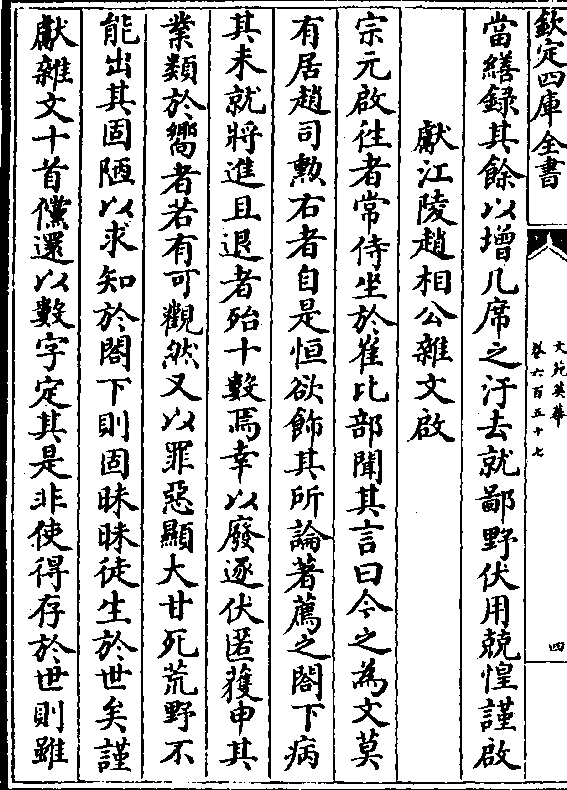 欽定四庫全書
文苑英華
卷六百五十七
四
當繕録其餘以增几席之汙去就鄙野伏用兢惶謹啟
獻江陵趙相公雜文啟
宗元啟徃者常侍坐於崔比部聞其言曰今之為文莫
有居趙司勲右者自是恒欲飾其所論著薦之閤下病
其未就將進且退者殆十數焉幸以廢逐伏匿獲申其
業類於嚮者若有可觀然又以罪惡顯大甘死荒野不
能出其固陋以求知於閤下則固昧昧徒生於世矣謹
獻雜文十首儻還以數字定其是非使得存於世則雖